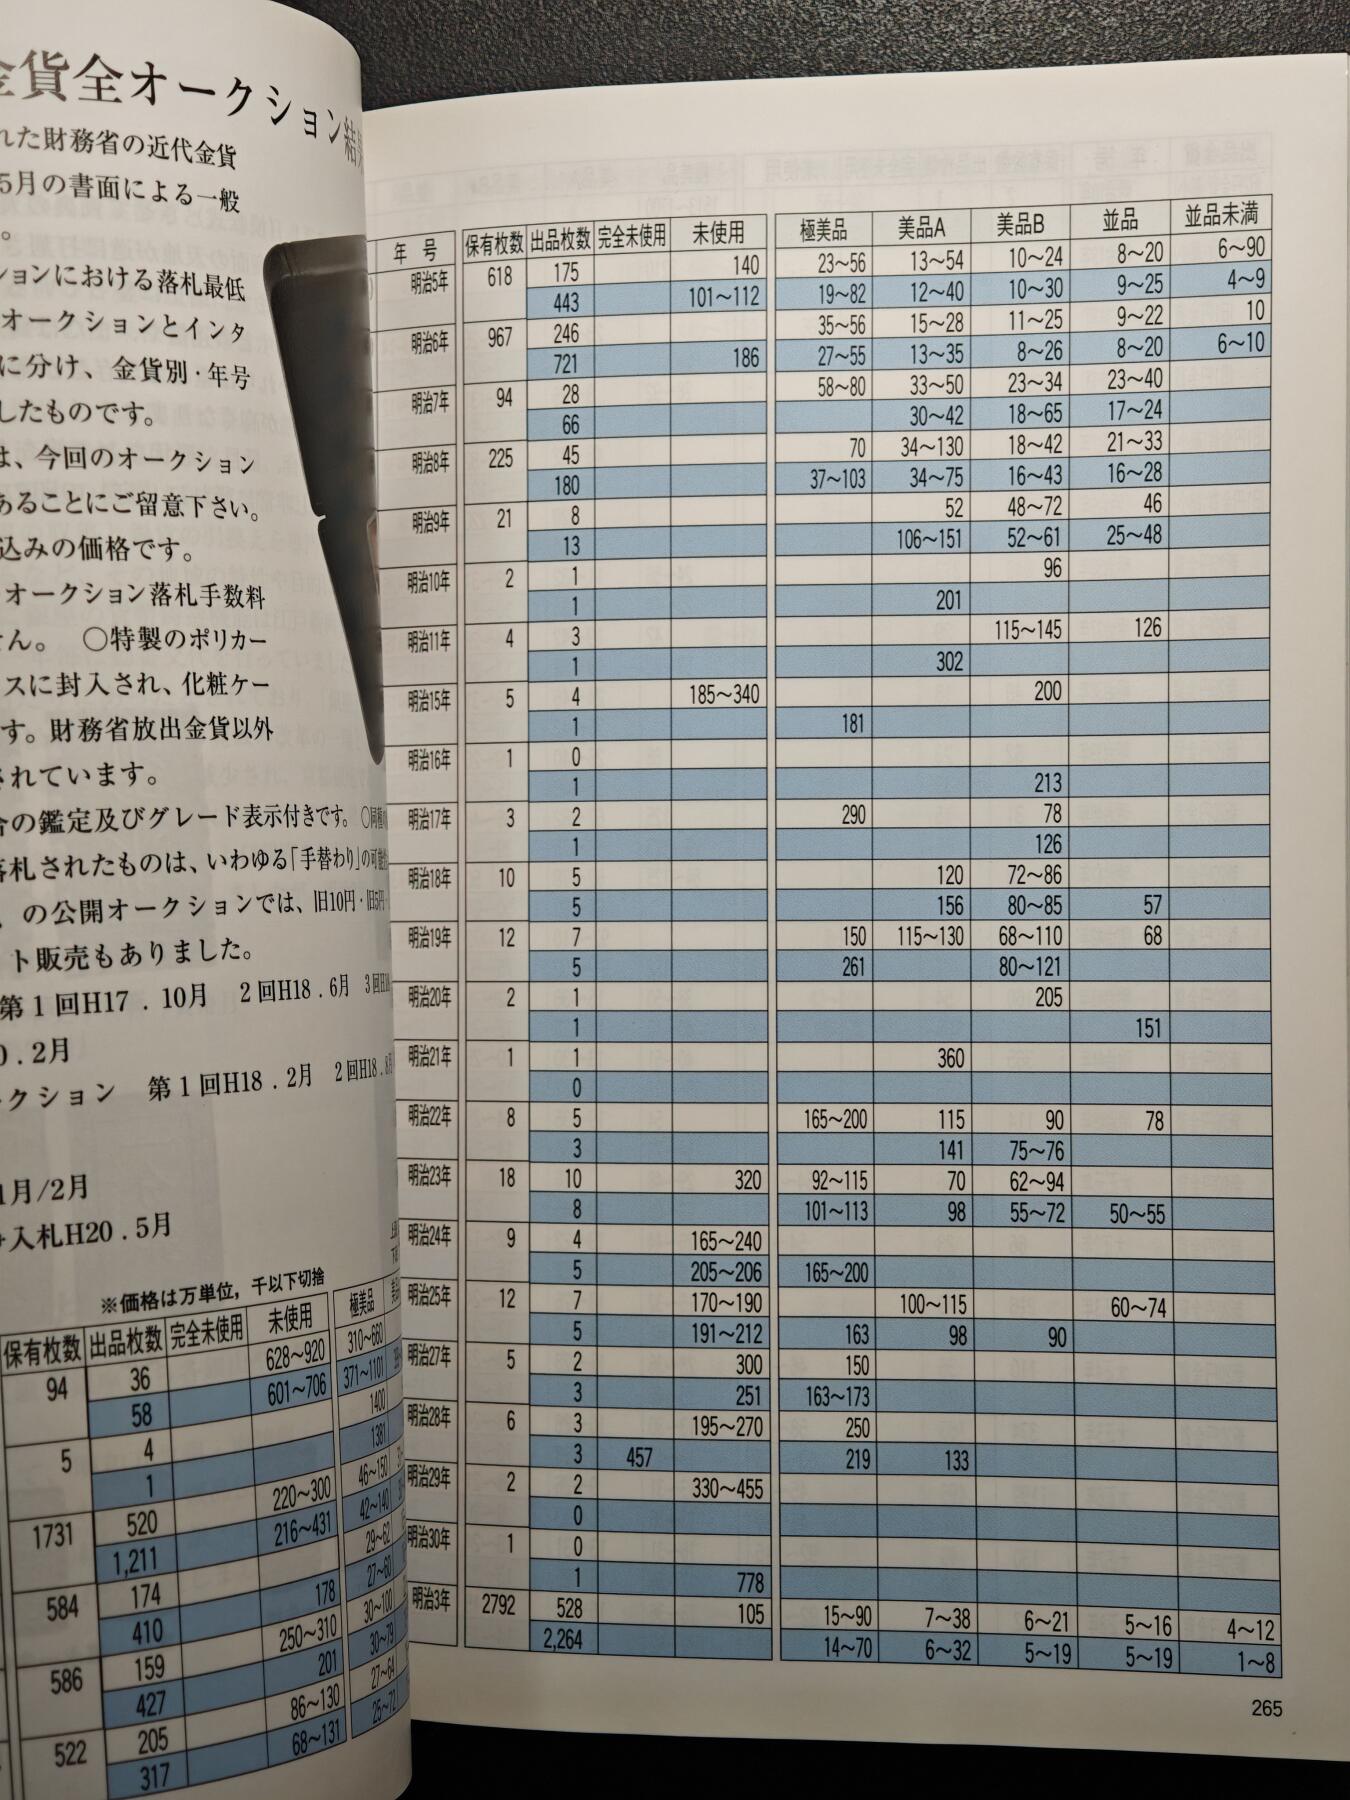 金貨全オークション結
れた財務省の近代金貨
5月の書面による一般
。
ションにおける落札最低
オークションとインタ
に分け、金貨別・年号
したものです。
は、今回のオークション
あることにご留意下さい。
込みの価格です。
オークション落札手数料
せん。 ○特製のポリカー
スに封入され、化粧ケー
す。財務省放出金貨以外
されています。
合の鑑定及びグレード表示付きです。
落札されたものは、いわゆる「手替わり」の可能
の公開オークションでは、旧10円・旧5円
ト販売もありました。
第1回H17.10月 2回H18.6月 3回H18
0.2月
クション 第1回H18.2月 2回H18.8月
1月/2月
入札H20.5月
※価格は万単位，千以下切捨
保有枚数 出品枚数 完全未使用 未使用 極美品
94 36 628～920 310～660
58 601～706 371～1101
5 4 1400
1 1381
1731 520 220～300 46～150
1,211 216～431 42～140
584 174 29～62
410 178 27～60
586 159 250～310 30～100
427 201 30～79
522 205 86～130 27～64
317 68～131 25～72
年 号 保有枚数 出品枚数 完全未使用 未使用 極美品 美品A 美品B 並品 並品未満
明治5年 618 175 140 23～56 13～54 10～24 8～20 6～90
443 101～112 19～82 12～40 10～30 9～25 4～9
明治6年 967 246 35～56 15～28 11～25 9～22 10
721 186 27～55 13～35 8～26 8～20 6～10
明治7年 94 28 58～80 33～50 23～34 23～40
66 30～42 18～65 17～24
明治8年 225 45 70 34～130 18～42 21～33
180 37～103 34～75 16～43 16～28
明治9年 21 8 52 48～72 46
13 106～151 52～61 25～48
明治10年 2 1 96
1 201
明治11年 4 3 115～145 126
1 302
明治15年 5 4 185～340 200
1 181
明治16年 1 0
1 213
明治17年 3 2 290 78
1 126
明治18年 10 5 120 72～86
5 156 80～85 57
明治19年 12 7 150 115～130 68～110 68
5 261 80～121
明治20年 2 1 205
1 151
明治21年 1 1 360
0
明治22年 8 5 165～200 115 90 78
3 141 75～76
明治23年 18 10 320 92～115 70 62～94
8 101～113 98 55～72 50～55
明治24年 9 4 165～240
5 205～206 165～200
明治25年 12 7 170～190 100～115 60～74
5 191～212 163 98 90
明治27年 5 2 300 150
3 251 163～173
明治28年 6 3 195～270 250
3 457 219 133
明治29年 2 2 330～455
0
明治30年 1 0
1 778
明治3年 2792 528 105 15～90 7～38 6～21 5～16 4～12
2,264 14～70 6～32 5～19 5～19 1～8
265